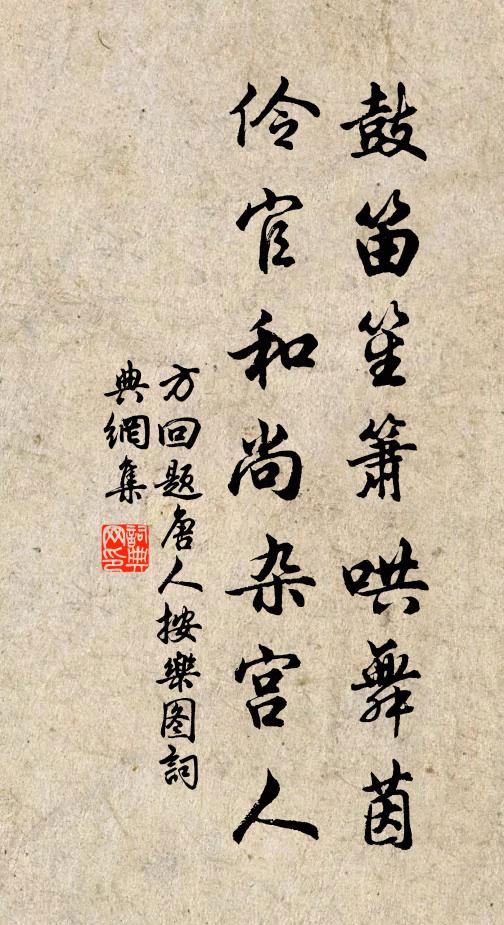 鼓笛笙箫哄舞茵
伶官和尚杂宫人
方回题唐人按樂图詞
典網集
詞典網印